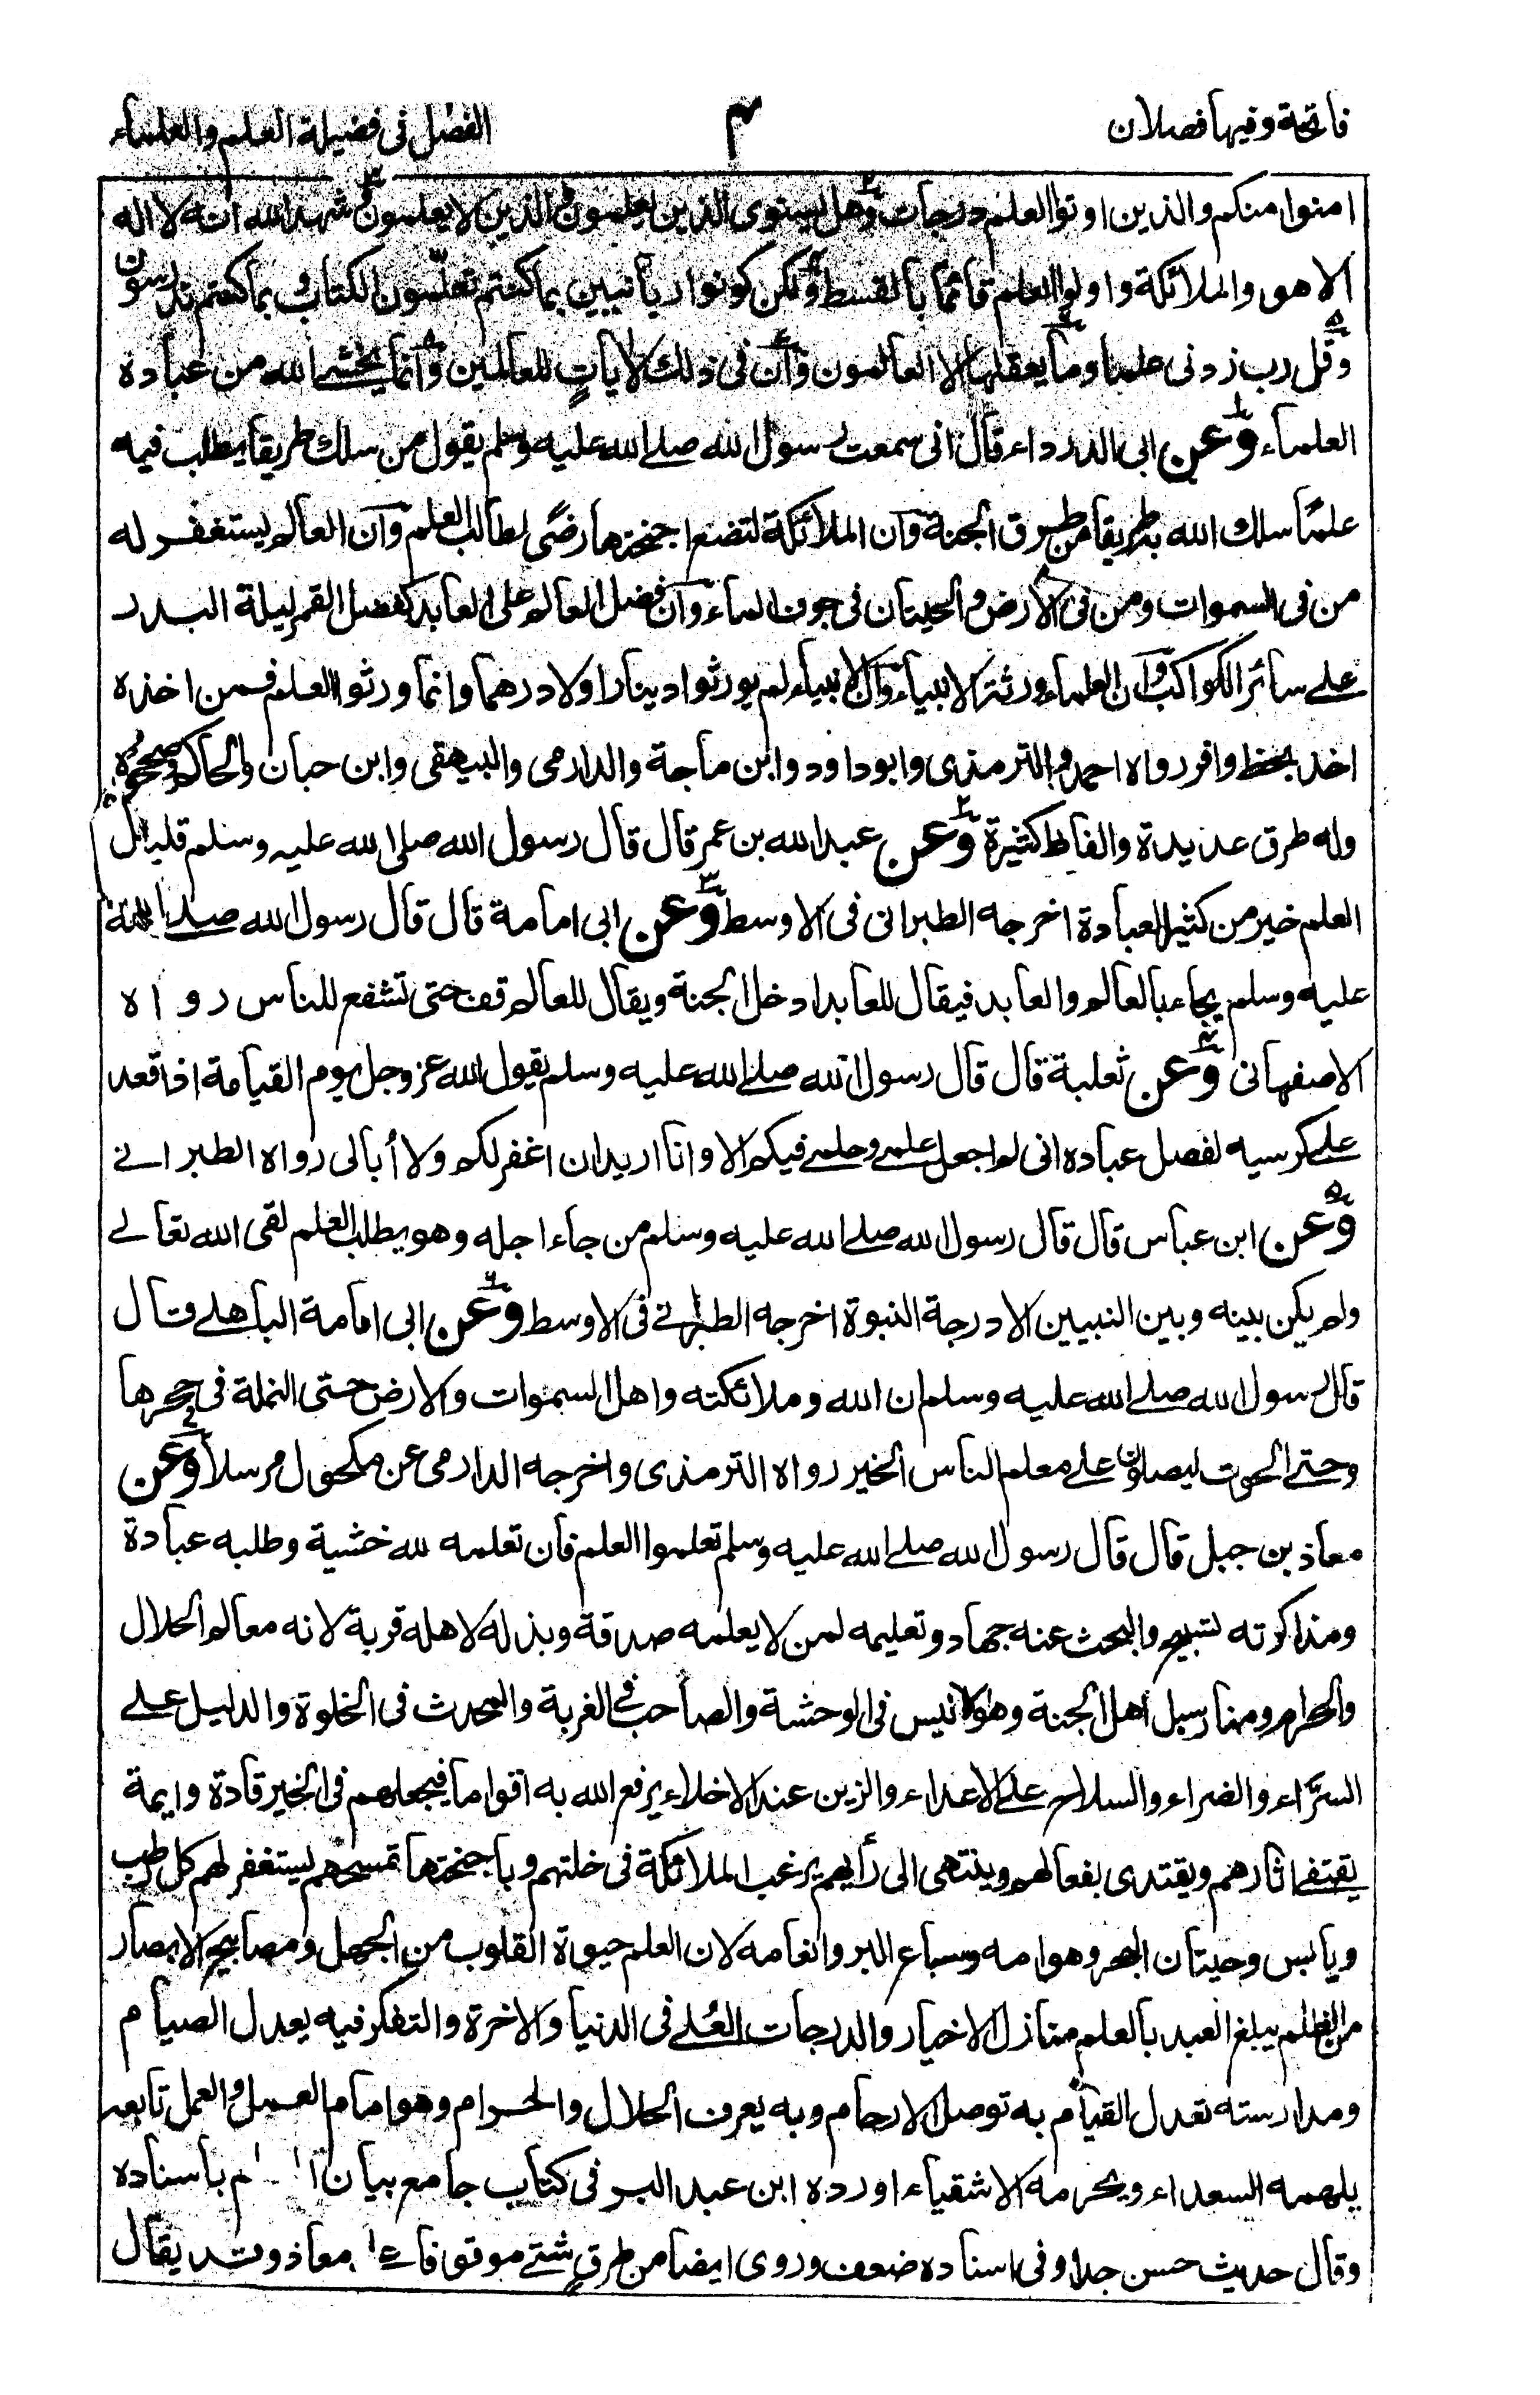 فاتحة وفيها فصلان
٣
الفصل فى فضيلة العلم والعلماء
امنوا منكم والذين اوتوا العلم درجات وهل يستوى الذين يعلمون والذين لا يعلمون شهد الله انه لا اله
الا هو والملائكة واولوا العلم قائما بالقسط ولكن كونوا ربانيين بما كنتم تعلّمون الكتاب وبما كنتم تدرسون
وقل رب زدنى علما وما يعقلها الا العالمون وان فى ذلك لآياتٍ للعالمين وانما يخشى الله من عباده
العلماء وعن ابى الدرداء قال انى سمعت رسول الله صلى الله عليه وسلم يقول من سلك طريقا يطلب فيه
علمًا سلك الله به طريقا من طرق الجنة وان الملائكة لتضع اجنحتها رضًى لطالب العلم وان العالم يستغفر له
من فى السموات ومن فى الارض والحيتان فى جوف الماء وان فضل العالم على العابد كفضل القمر ليلة البدر
على سائر الكواكب وان العلماء ورثة الانبياء وان الانبياء لم يورثوا دينارا ولا درهما وانما ورثوا العلم فمن اخذه
اخذ بحظ وافر رواه احمد والترمذى وابو داود وابن ماجة والدارمى والبيهقى وابن حبان والحاكم وصححوه
وله طرق عديدة والفاظ كثيرة وعن عبد الله بن عمر قال قال رسول الله صلى الله عليه وسلم قليل
العلم خير من كثير العبادة اخرجه الطبرانى فى الاوسط وعن ابى امامة قال قال رسول الله صلى الله
عليه وسلم يجاء بالعالم والعابد فيقال للعابد ادخل الجنة ويقال للعالم قف حتى تشفع للناس رواه
الاصفهانى وعن ثعلبة قال قال رسول الله صلى الله عليه وسلم يقول الله عز وجل يوم القيامة اذا قعد
على كرسيه لفصل عباده انى لم اجعل علمى وحلمى فيكم الا وانا اريد ان اغفر لكم ولا أبالى رواه الطبرانى
وعن ابن عباس قال قال رسول الله صلى الله عليه وسلم من جاء اجله وهو يطلب العلم لقى الله تعالى
ولم يكن بينه وبين النبيين الا درجة النبوة اخرجه الطبرانى فى الاوسط وعن ابى امامة الباهلى قال
قال رسول الله صلى الله عليه وسلم ان الله وملائكته واهل السموات والارض حتى النملة فى جحرها
وحتى الحوت ليصلون على معلم الناس الخير رواه الترمذى واخرجه الدارمى عن مكحول مرسلا وعن
معاذ بن جبل قال قال رسول الله صلى الله عليه وسلم تعلموا العلم فان تعلمه لله خشية وطلبه عبادة
ومذاكرته تسبيح والبحث عنه جهاد وتعليمه لمن لا يعلمه صدقة وبذله لاهله قربة لانه معالم الحلال
والحرام ومنار سبل اهل الجنة وهو الانيس فى الوحشة والصاحب فى الغربة والمحدث فى الخلوة والدليل على
السرَّاء والضراء والسلاح على الاعداء والزين عند الاخلاء يرفع الله به اقواما فيجعلهم فى الخير قادة وايمة
يقتفى اثارهم ويقتدى بفعالهم وينتهى الى رأيهم يرغب الملائكة فى خلتهم وباجنحتها تمسحهم يستغفر لهم كل رطب
ويابس وحيتان البحر وهوامه وسباع البر وانعامه لان العلم حيوة القلوب من الجهل ومصابيح الابصار
من الظلم يبلغ العبد بالعلم منازل الاخيار والدرجات العُلى فى الدنيا والاخرة والتفكر فيه يعدل الصيام
ومدارسته تعدل القيام به توصل الارحام وبه يعرف الحلال والحرام وهو امام العمل والعمل تابعه
يلهمه السعداء ويحرمه الاشقياء اورده ابن عبد البر فى كتاب جامع بيان باسناده
وقال حديث حسن جدا وفى اسناده ضعف وروى ايضا من طرقٍ شتى موقوفا معاذ وقد يقال